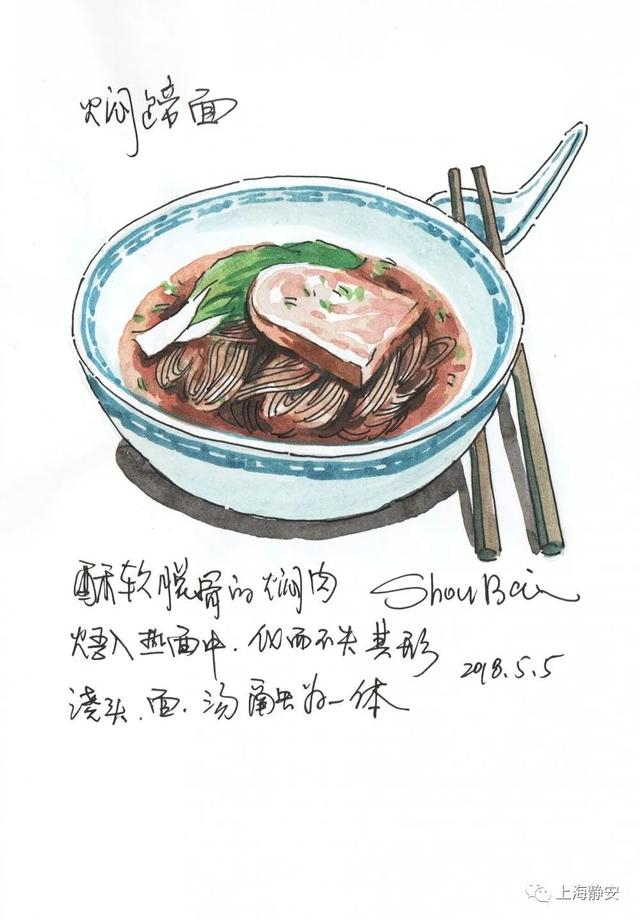 焖蹄面
酥软脱骨的焖肉
焐入热面中.化而不失其形
2018.5.5
浇头.面.汤融为一体
上海静安